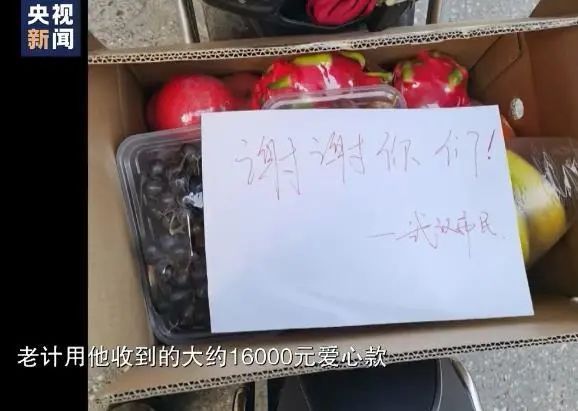 央视
新闻
谢谢你们!
—武汉市民
老计用他收到的大约16000元爱心款